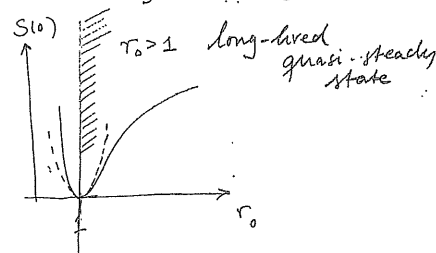 S(0)
r₀ > 1 long-lived
quasi-steady
state
r₀
1